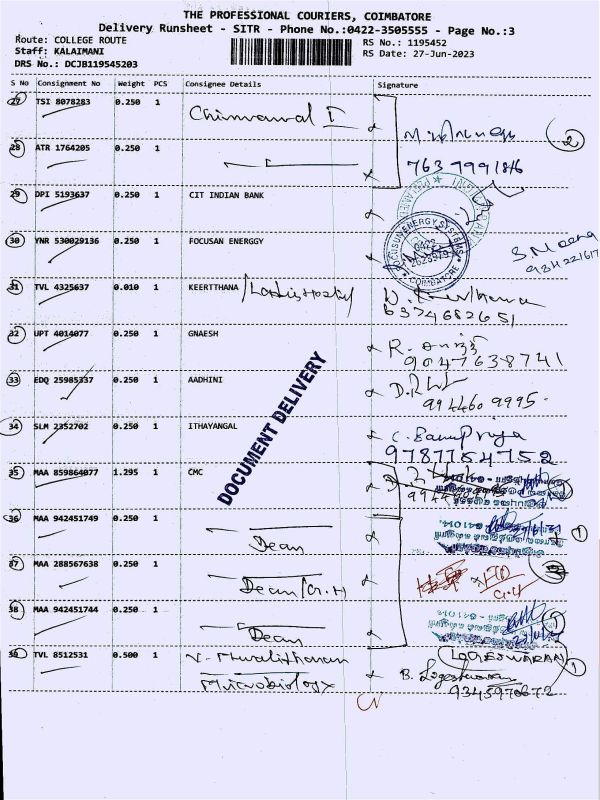 THE PROFESSIONAL COURIERS, COIMBATORE
Delivery Runsheet - SITR - Phone No.:0422-3505555 - Page No.:3
Route: COLLEGE ROUTE
Staff: KALAIMANI
DRS No.: DCJB119545203
RS No.: 1195452
RS Date: 27-Jun-2023
S No Consignment No Weight PCS Consignee Details Signature
27 TSI 8078283 0.250 1
2
28 ATR 1764205 0.250 1
763 7991816
29 DPI 5193637 0.250 1 CIT INDIAN BANK
30 YNR 530029136 0.250 1 FOCUSAN ENERGGY
FOCUSUN ENERGY SYSTEMS
COIMBATORE
S. Meena
31 TVL 4325637 0.010 1 KEERTTHANA
6374682651
32 UPT 4014077 0.250 1 GNAESH
R.
9047638741
33 EDQ 25985337 0.250 1 AADHINI
994460 9995
DOCUMENT DELIVERY
34 SLM 2352702 0.250 1 ITHAYANGAL
C. Banupriya
9787754752
35 MAA 859864077 1.295 1 CMC
36 MAA 942451749 0.250 1
Dean
37 MAA 288567638 0.250 1
Dean
38 MAA 942451744 0.250 1
Dean
39 TVL 8512531 0.500 1 V. Muralitharan
Microbiology
LOGESWARAN
B. Logeshwaran
9345970672